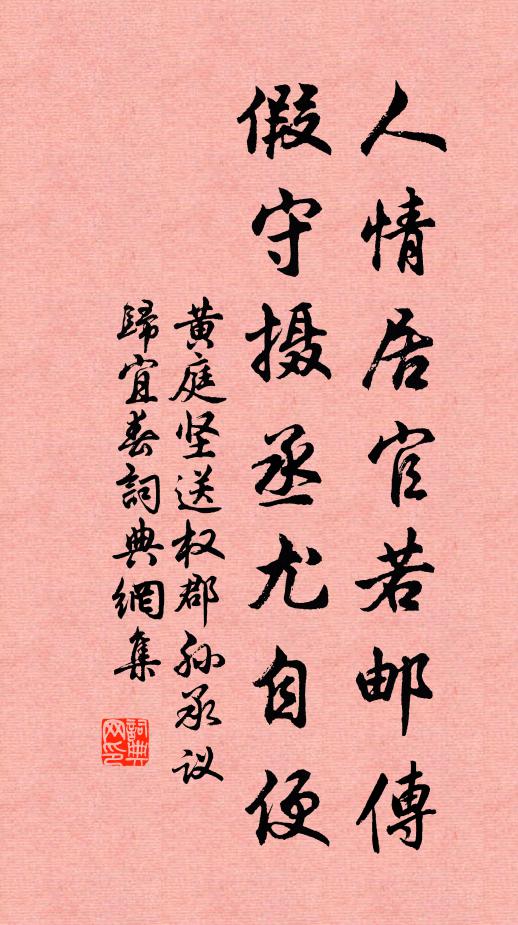 人情居官若邮傳
假守摄丞尤自便
黄庭坚送权郡孙承议
歸宜春詞典網集
詞典网印